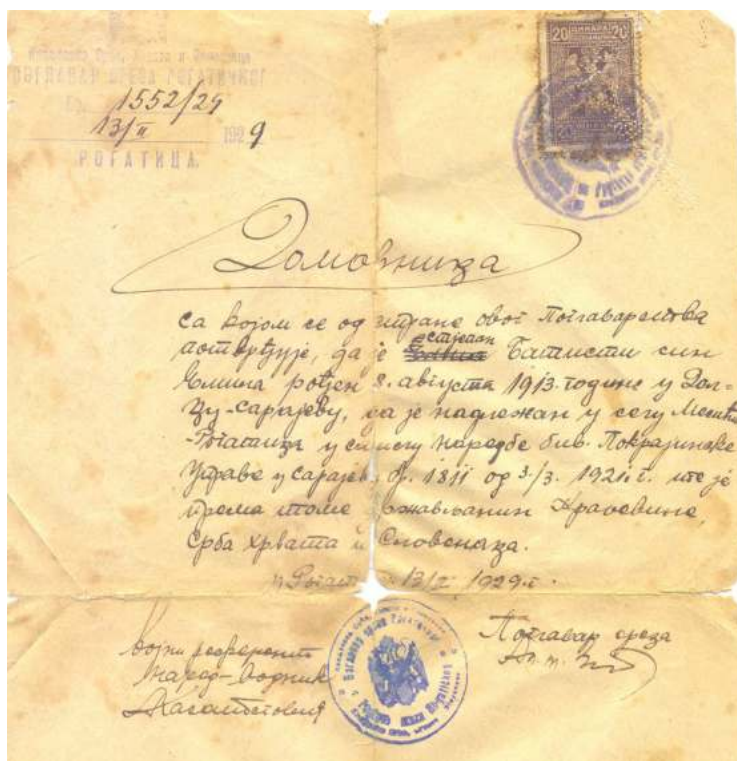 Краљевина Срба, Хрвата и Словенаца
ПОГЛАВАР СРЕЗА РОГАТИЧКОГ
Бр. 1552/29
13/II 1929
РОГАТИЦА.
20 ДИНАРА 20
Домовница
са којом се од стране овог Поглаварства
потврђује, да је Стјепан Батисти син
рођен 8. августа 1913. године у Дол-
цу-Сарајеву, да је надлежан у селу
-Рогатица у смислу наредбе бив. Покрајинске
Управе у Сарајеву бр. 1811 од 3/3. 1921. г. те је
према томе државњанин Краљевине,
Срба Хрвата и Словенаца.
у Рогатици 13/2 1929 г.
Војни референт
Поглавар среза